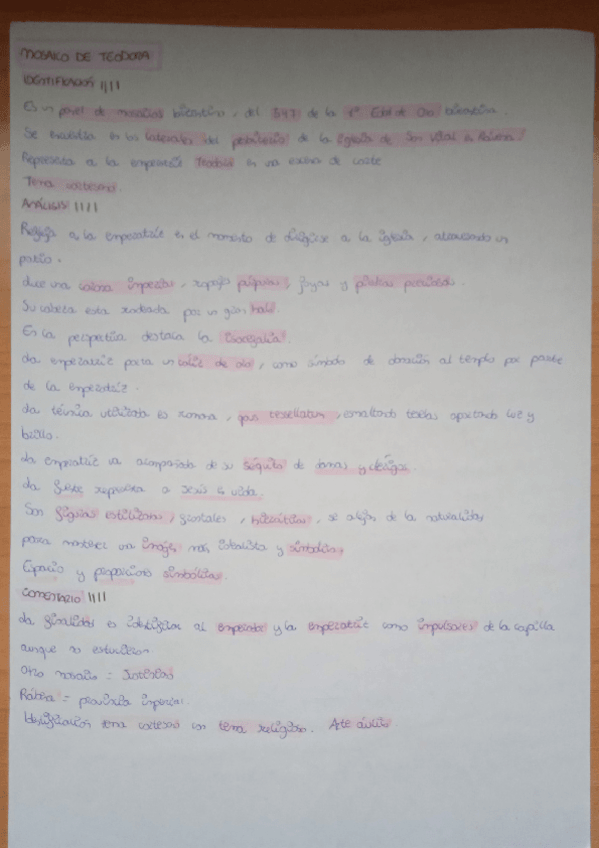 MOSAICO DE TEODORA
IDENTIFICACIÓN ////
Es un panel de mosaicos bizantino, del 547 de la 1ª Edad de Oro bizantina.
Se encuentra en los laterales del presbiterio de la iglesia de San Vital en Rávena.
Representa a la emperatriz Teodora en una escena de corte
Tema cortesano.
ANÁLISIS ////
Refleja a la emperatriz en el momento de dirigirse a la iglesia, atravesando un
patio.
Luce una corona imperial, ropajes púrpuras, joyas y piedras preciosas.
Su cabeza esta rodeada por un gran halo.
En la perspectiva destaca la
La emperatriz porta un cáliz de oro, como símbolo de donación al templo por parte
de la emperatriz.
La técnica utilizada es romana, opus tessellatum, esmaltando teselas aportando luz y
brillo.
La emperatriz va acompañada de su séquito de damas y clérigos.
La fuente representa a Jesús es vida.
Son figuras estilizadas, frontales, hieráticas, se alejan de la naturalidad
para mostrar una imagen más idealista y simbólica.
Espacio y proporciones simbólicas.
COMENTARIO ////
La finalidad es identificar al emperador y la emperatriz como impulsores de la capilla
aunque no estuvieron.
Otro mosaico = Justiniano
Rávena = provincia imperial.
Identificación tema cortesano con tema religioso. Arte áulico.